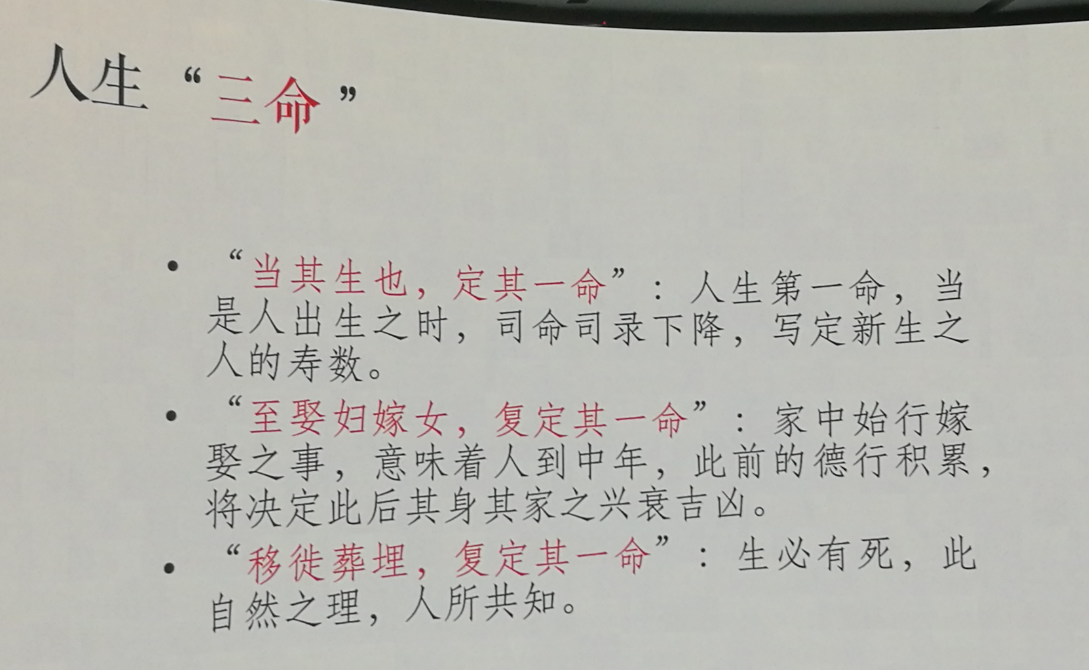 人生“三命”
• “当其生也，定其一命”：人生第一命，当
是人出生之时，司命司录下降，写定新生之
人的寿数。
• “至娶妇嫁女，复定其一命”：家中始行嫁
娶之事，意味着人到中年，此前的德行积累，
将决定此后其身其家之兴衰吉凶。
• “移徙葬埋，复定其一命”：生必有死，此
自然之理，人所共知。